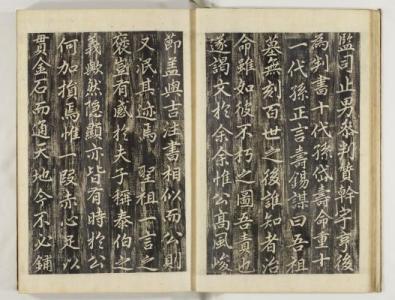 監司止男恭判賛幹字亨後
為判書十代孫岱壽命重十
一代孫正言壽錫謀曰吾祖
墓無刻百世之後誰知者治
命雖如彼不朽之圖吾責也
遂謁文於余余惟公高風峻
節盖與吉注書相似而公則
又泯其迹焉 聖祖一言之
褒豈有感於夫子稱泰伯之
義歟然隐顯亦皆有時於公
何加損焉惟一段赤心足以
貫金石而通天地今不必鋪